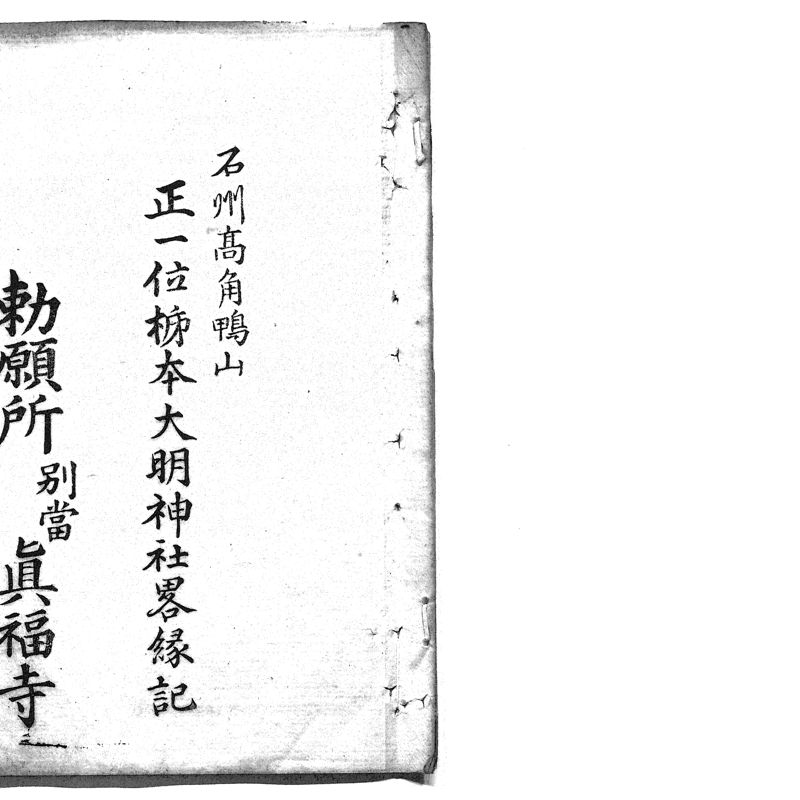 石州高角鴨山
正一位柹本大明神社畧縁記
勅願所 別當 眞福寺